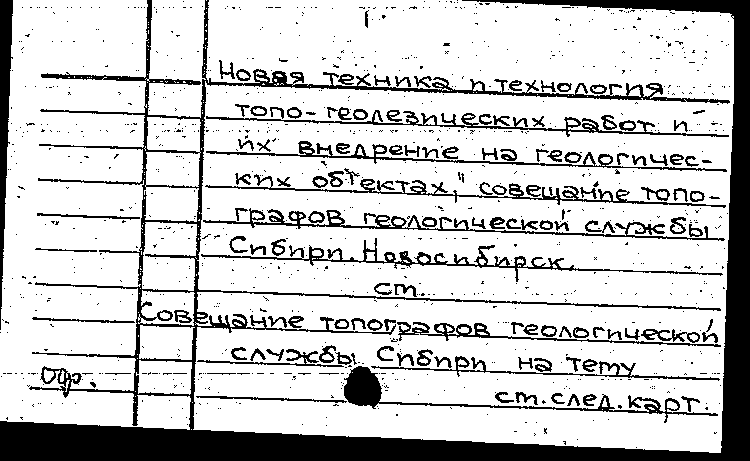 Новая техника и технология
топо-геодезических работ и
их внедрение на геологичес-
ких объектах," совещание топо-
графов геологической службы
Сибири. Новосибирск.
ст.
Совещание топографов геологической
службы Сибири на тему
офр.
ст. след. карт.